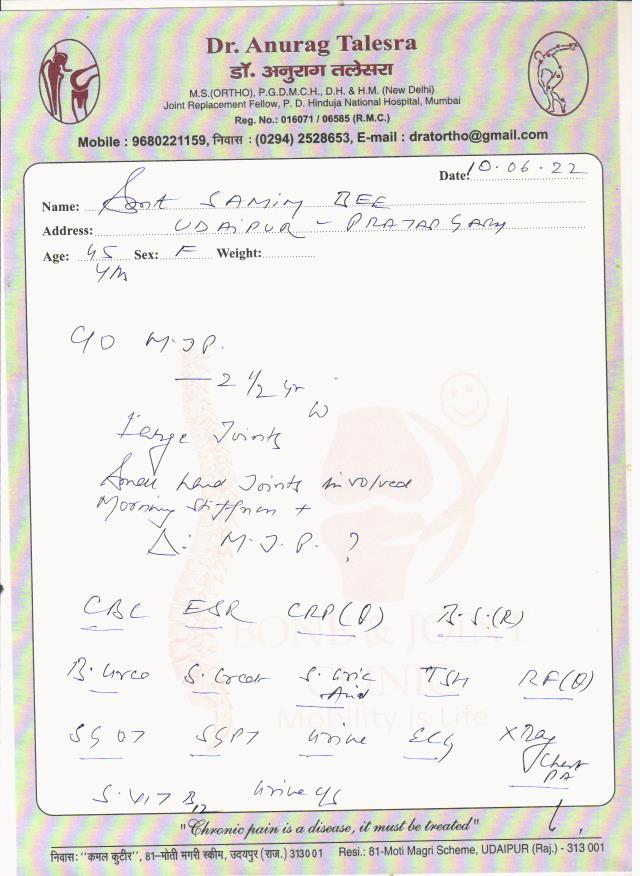 Dr. Anurag Talesra
डॉ. अनुराग तलेसरा
M.S.(ORTHO), P.G.D.M.C.H., D.H. & H.M. (New Delhi)
Joint Replacement Fellow, P. D. Hinduja National Hospital, Mumbai
Reg. No.: 016071 / 06585 (R.M.C.)
Mobile : 9680221159, निवास : (0294) 2528653, E-mail : dratortho@gmail.com
Date: 10.06.22
Name: Smt SAMIM BEE
Address: UDAIPUR - PRATAPGARH
Age: 45 Sex: F Weight:
Yrs
C/O M.J.P.
— 2 1/2 yr
Large Joints
Small hand Joints involved
Morning stiffness +
Δ: M.J.P. ?
CBC ESR CRP(Q) B.S.(R)
B. Urea S. Creat S. Uric Acid TSH RF(Q)
SGOT SGPT Urine ECG X Ray Chest PA
S. VIT B12 Urine C/S
BONE & JOINT
CLINIC
Mobility is Life
"Chronic pain is a disease, it must be treated"
निवास: "कमल कुटीर", 81-मोती मगरी स्कीम, उदयपुर (राज.) 313001 Resi.: 81-Moti Magri Scheme, UDAIPUR (Raj.) - 313 001